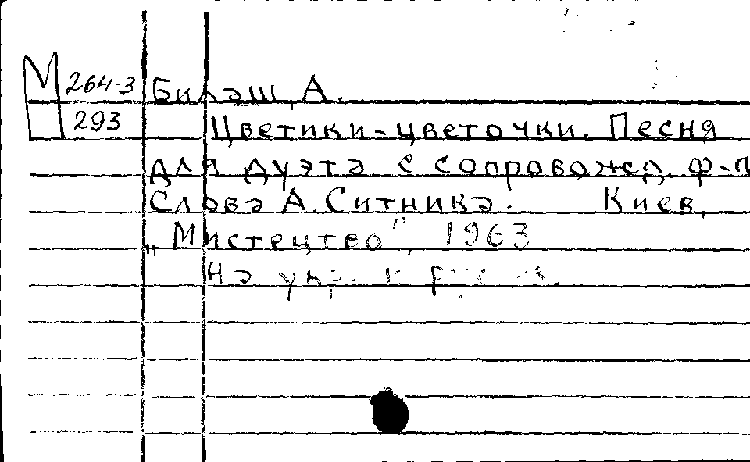 М 264-3
293
Билаш, А.
Цветики-цветочки. Песня
для дуэта с сопровожд. ф-п
Слова А. Ситника. Киев,
„Мистецтво", 1963
На укр. и русск. яз.